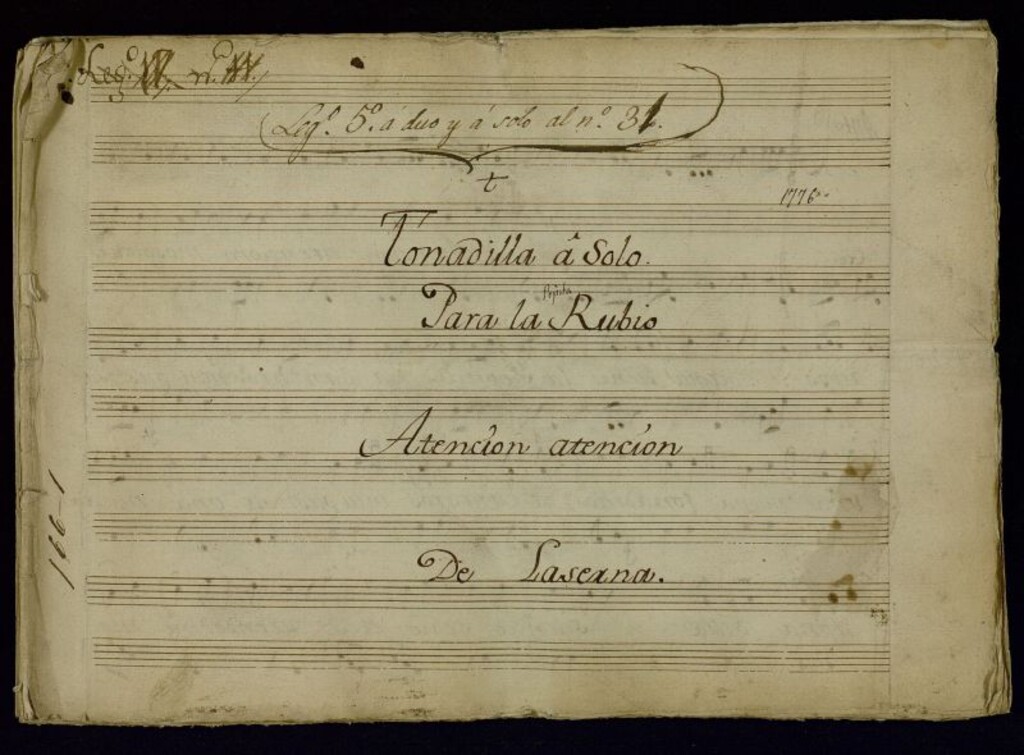 Leg.º n.º
Leg.º 5.º á duo y á solo al n.º 31.
1776.
Tonadilla â Solo.
Para la Rubio
Atencion atencion
De Laserna.
166-1